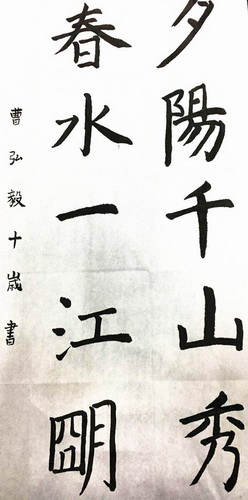 夕陽千山秀
春水一江朙
曹弘毅十歲書